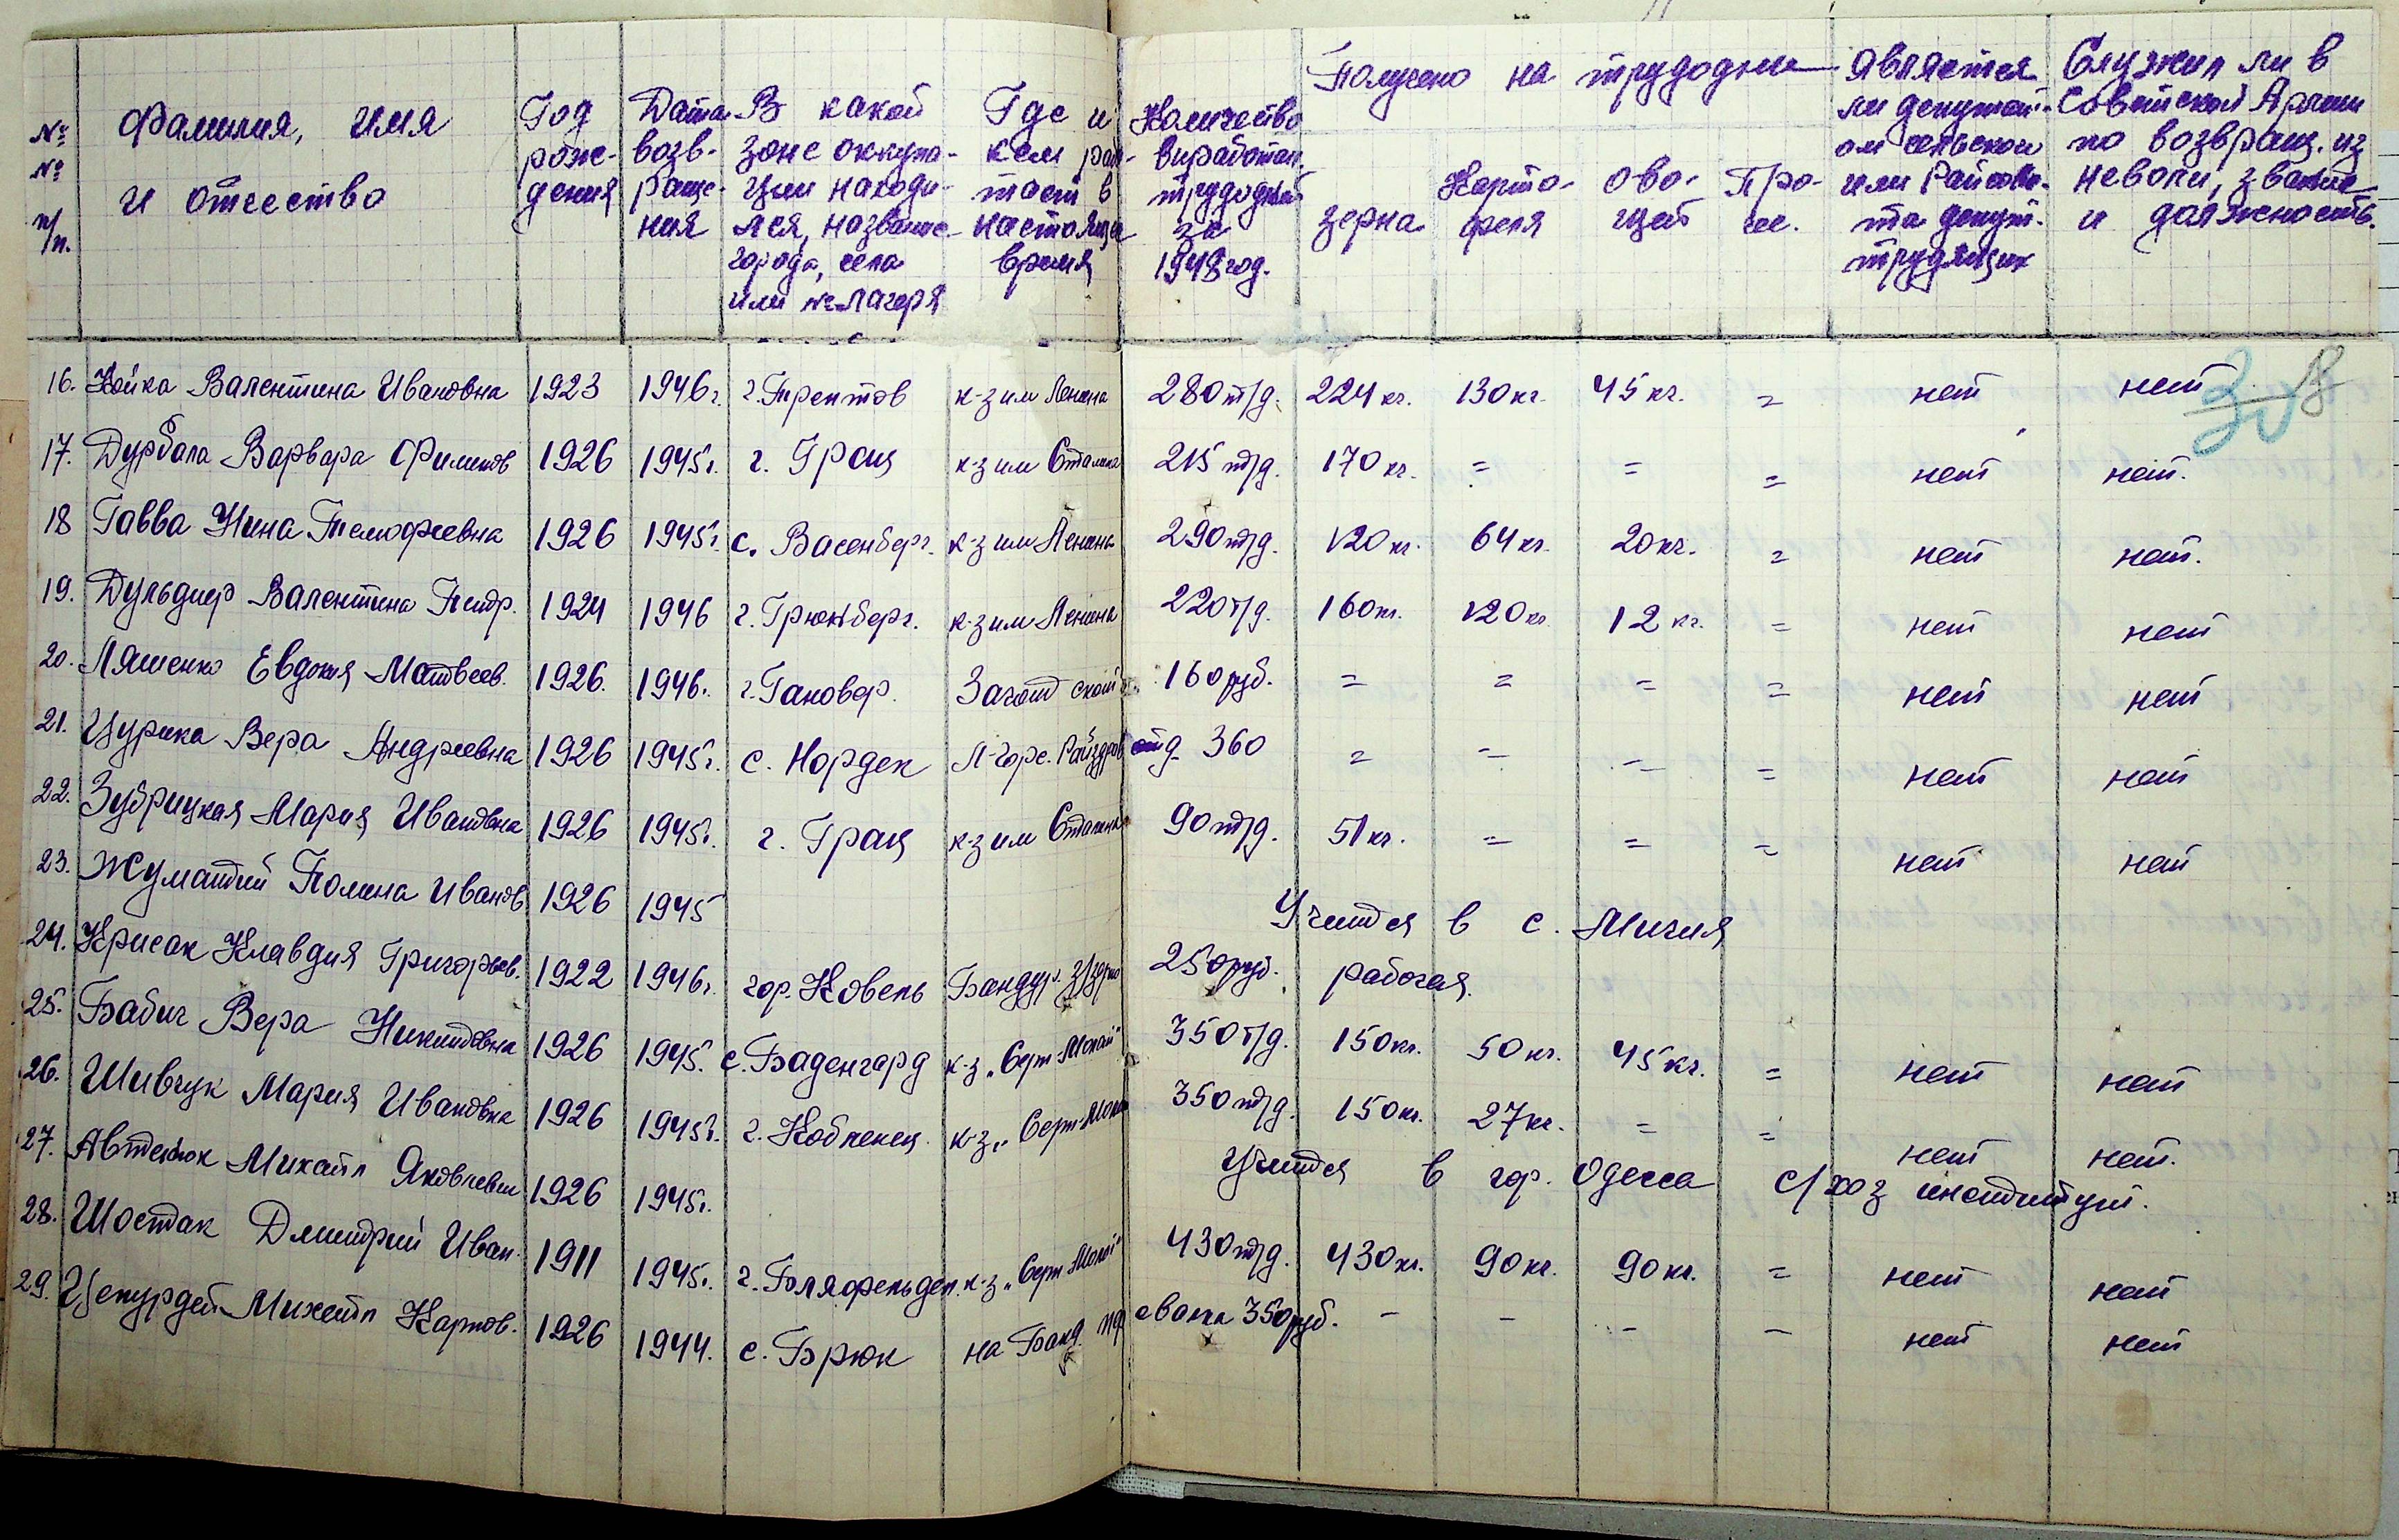 № № п/п. Фамилия, имя и отчество Год рождения Дата возвращения В какой зоне оккупации находился, название города, села или № лагеря Где и кем работает в настоящее время Количество выработан. трудодней за 1948 год. Получено на трудодни зерна Картофеля Овощей Прочее. Является ли депутатом сельского или Райсовета депут. трудящих Служил ли в Советской Армии по возвращ. из неволи, звание и должность.
16. Койка Валентина Ивановна 1923 1946 г. г. Трептов к-з им Ленина 280 т/д. 224 кг. 130 кг. 45 кг. = нет нет
17. Дурбала Варвара Филимов 1926 1945 г. г. Грац к-з им Сталина 215 т/д. 170 кг. = = = нет нет.
18 Гавва Нина Темофеевна 1926 1945 г. с. Васенберг. к-з им Ленина 290 т/д. 120 кг. 64 кг. 20 кг. = нет нет.
19. Дульдиер Валентина Петр. 1924 1946 г. Грюнберг. к-з им Ленина 220 т/д. 160 кг. 120 кг 12 кг. = нет нет
20. Ляшенко Евдокия Матвеев. 1926. 1946 г. г. Гановер. Заготскот 160 руб. = = = = нет нет
21. Цурика Вера Андреевна 1926 1945 г. с. Нордек Л-горс. Райздрав отд. 360 = - - = нет нет
22. Зубрицкая Мария Ивановна 1926 1945 г. г. Грац к-з им Сталина 90 т/д. 51 кг. = = = нет нет
23. Жуматий Полина Иванов 1926 1945 Учится в с. Мигия
24. Крисак Клавдия Григорьев. 1922 1946 г. гор. Ковель Бандур. 250 руб. рабочая.
25. Бабич Вера Никитовна 1926 1945. с. Баденгард к-з „Серп Молот" 350 т/д. 150 кг. 50 кг. 45 кг. = нет нет
26. Шивчук Мария Ивановна 1926 1945 г. г. Кобленец. к-з „Серп Молот 350 т/д. 150 кг. 27 кг. = = нет нет.
27. Автенюк Михаил Яковлевич 1926 1945 г. Учится в гор. Одесса с/хоз институт.
28. Шостак Дмитрий Иван. 1911 1945 г. г. Голяфельден. к-з „Серп Молот" 430 т/д. 430 кг. 90 кг. 90 кг. = нет нет
29. Цепурдей Михаил Карпов. 1926 1944. с. Брюк на Банд. 350 руб. - - - - нет нет